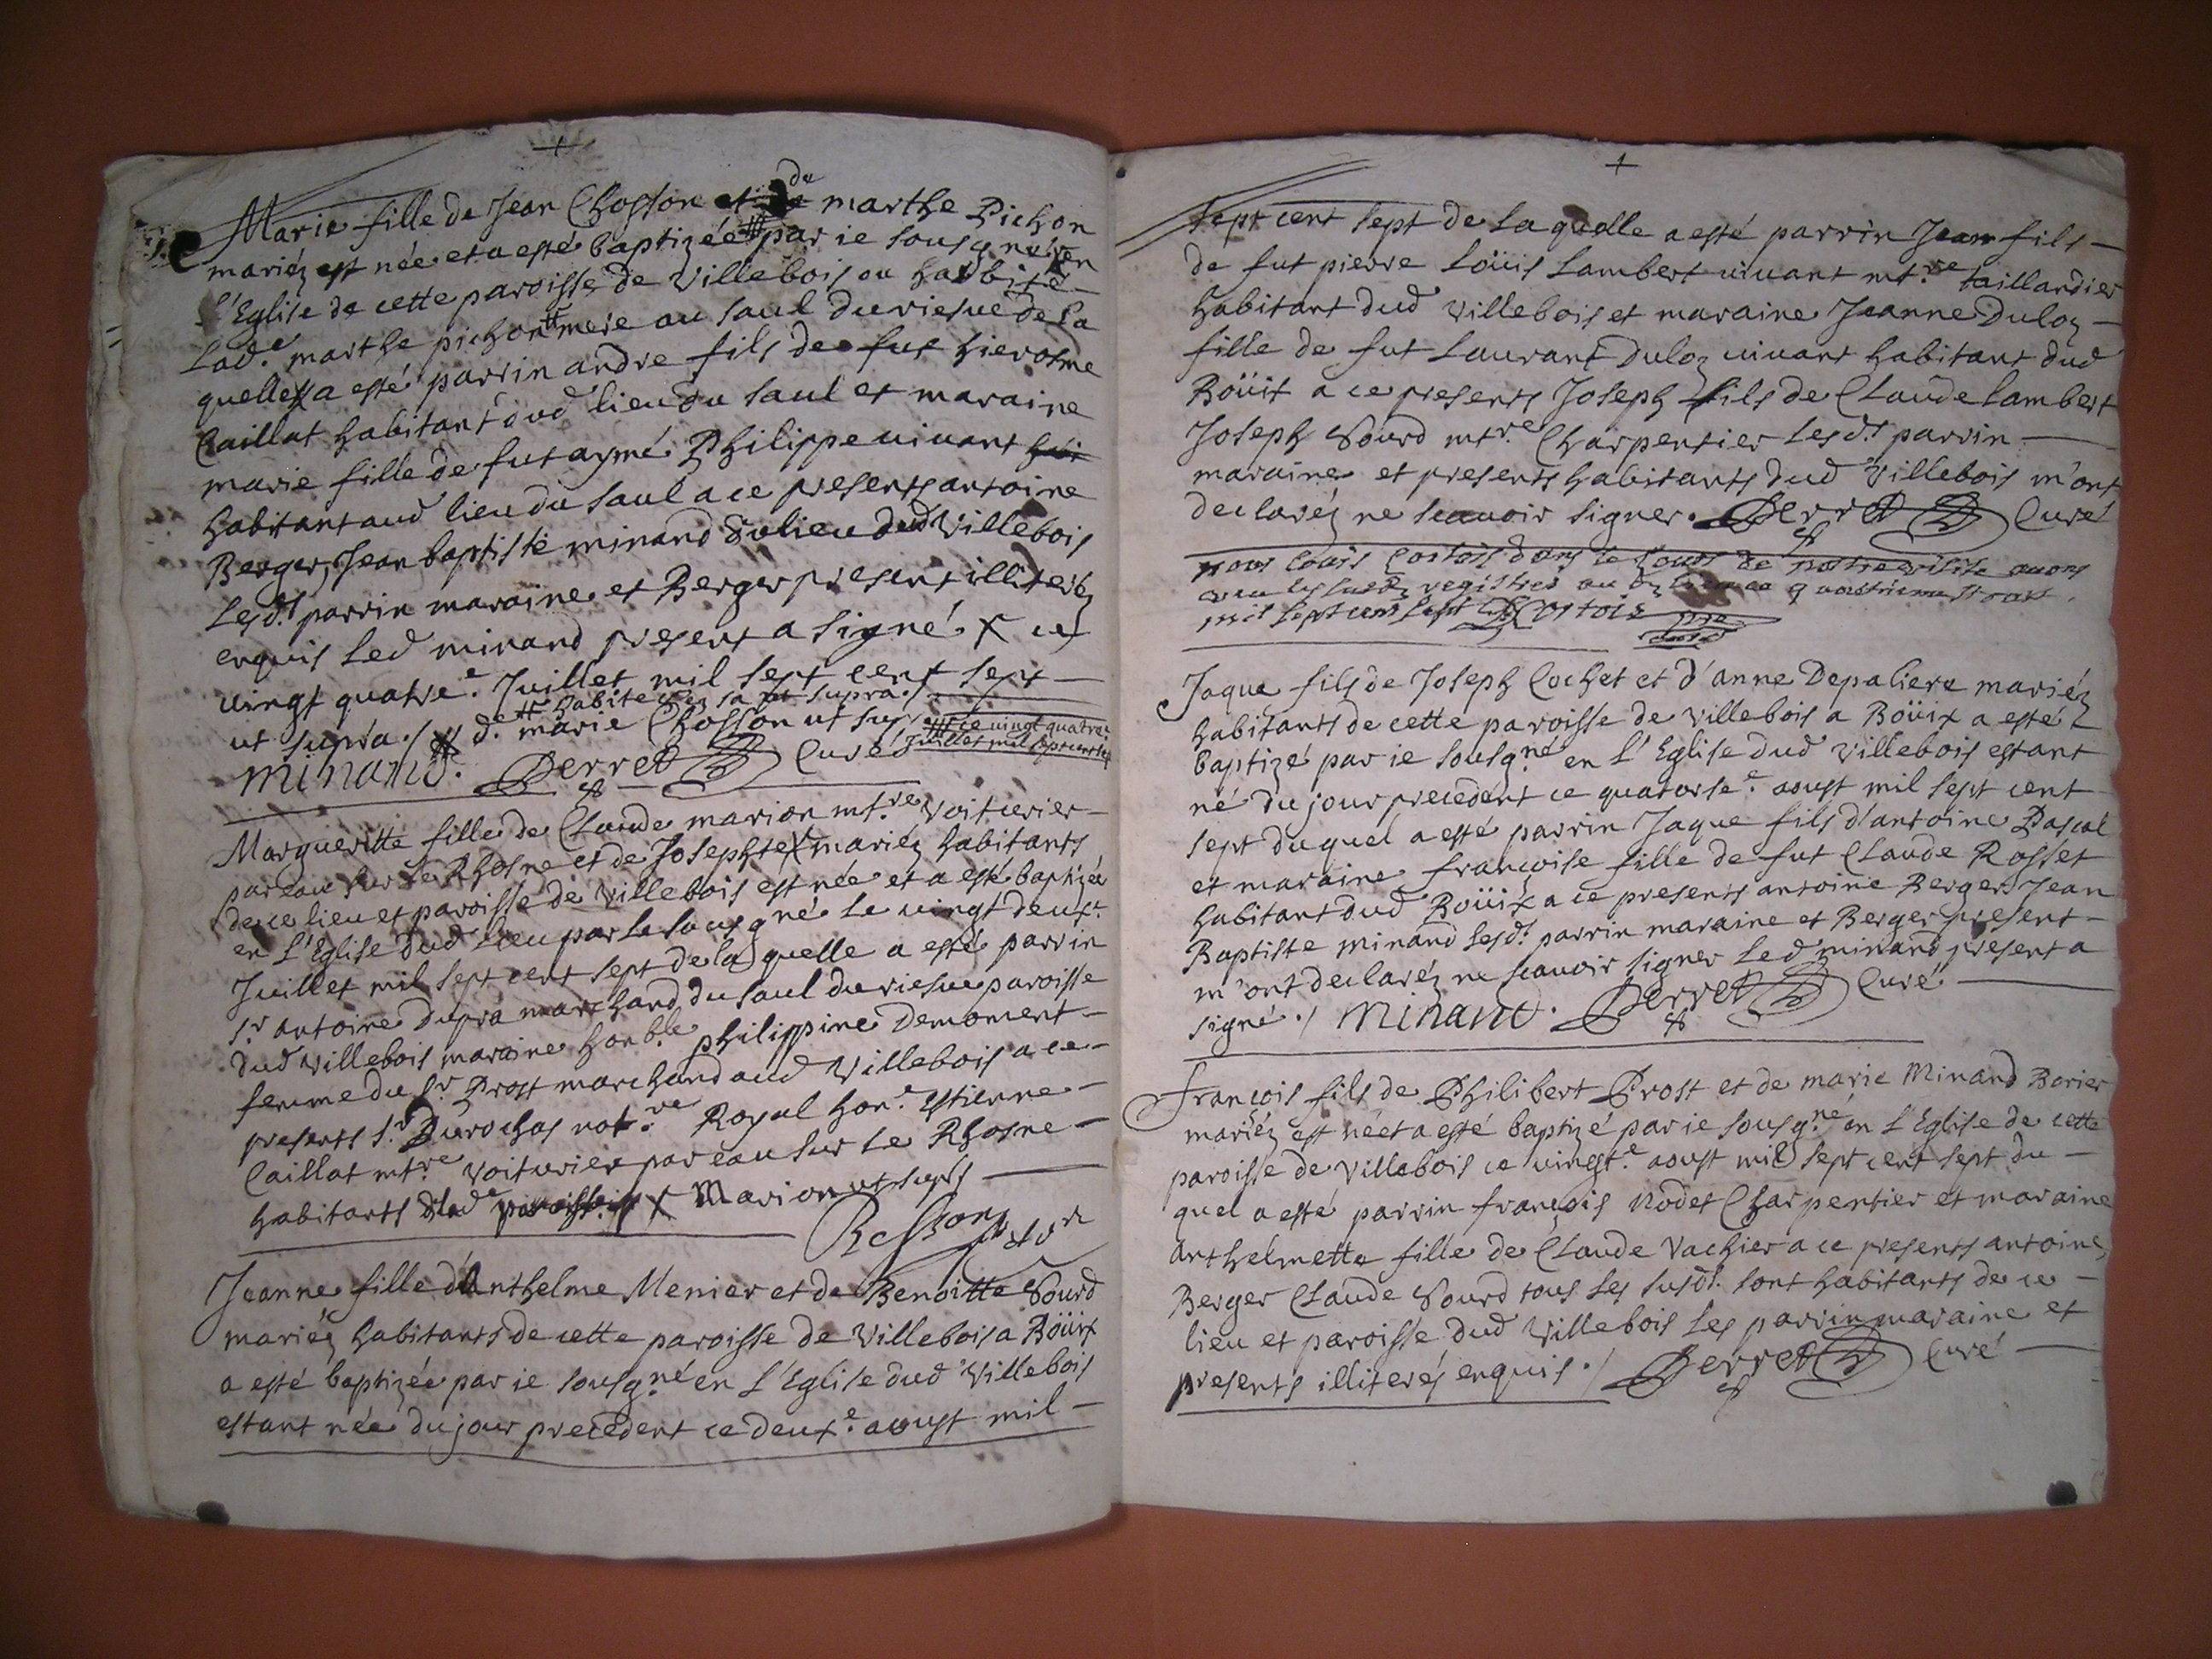 Marie fille de Jean Chosson et de marthe Pichon
mariéz est née et a esté baptizée par ie sousgné en
l'Eglise de cette paroisse de Villebois ou habite
lad.e marthe pichon mere au saul du riesue de la
quelle a esté parrin andre fils de fut hierosme
Caillat habitant dud lieu du saul et maraine
marie fille de fut aymé Philippe uiuant
habitant aud lieu du saul a ce presents antoine
Berger, Jean baptiste minand du lieu dud Villebois
Lesd.t parrin maraine et Berger present illiterez
enquis Led minand present a signé x ce
uingt quatre.e Juillet mil sept cent sept
habitent supra
ut supra ./ d.e marie Chosson ut sup ce uingt quatre
Juillet mil sept cent sept
Minand. Perret Curé
Margueritte fille de Claude marion mt.re Voiturier
par eau sur le Rhosne et de Josephte x mariéz habitants
de ce lieu et paroisse de Villebois est née et a esté baptizée
en L'Eglise dud Lieu par Le sousgné Le uingt deux.e
Juillet mil sept cent sept de la quelle a esté parrin
s.r antoine Dupra marchand du saul du riesue paroisse
dud Villebois maraine honb.le philippine Demoment
femme du s.r Prost marchand aud Villebois a ce
presents s.r Durochas not.re Royal hon.e estienne
Caillat mt.re Voiturier par eau sur Le Rhosne
habitants x Marion ut supra
Jeanne fille d'Anthelme Menier et de Benoitte Sourd
mariéz habitants de cette paroisse de Villebois a Boüix
a esté baptizée par ie sousg.né en L'Eglise dud Villebois
estant née du jour precedent ce deux.e aoust mil
sept cent sept de La quelle a esté parrin Jean fils
de fut pierre Loüis Lambert uiuant mt.re taillandier
habitant dud Villebois et maraine Jeanne Duloz
fille de fut Laurant Duloz uiuant habitant dud
Boüix a ce presents Joseph fils de Claude Lambert
Joseph Sourd mt.re Charpentier Lesd.t parrin
maraine et presents habitants dud Villebois m'ont
declaréz ne scauoir signer. Perret Curé
nous Louis Cortois dans le cours de notre visite auons
veu les susd registres quatrieme
mil sept cens sept Cortois
Jaque fils de Joseph Cochet et d'anne Depaliere mariéz
habitants de cette paroisse de Villebois a Boüix a esté
baptizé par ie sousg.né en L'Eglise dud Villebois estant
né du jour precedent ce quatorse.e aoust mil sept cent
sept duquel a esté parrin Jaque fils d'antoine Pascal
et maraine françoise fille de fut Claude Rosset
habitant dud Boüix a ce presents antoine Berger Jean
Baptiste minand Lesd.t parrin maraine et Berger present
m'ont declaréz ne scauoir signer Led minand present a
signé ./ Minand. Perret Curé
François fils de Philibert Prost et de marie Minand Borier
mariéz est né et a esté baptizé par ie sousg.né en L'Eglise de cette
paroisse de Villebois ce uingt.e aoust mil sept cent sept du
quel a esté parrin françois Nodet Charpentier et maraine
anthelmette fille de Claude Vachier a ce presents antoine
Berger Claude Sourd tous Les susd.t sont habitants de ce
lieu et paroisse dud Villebois Les parrin maraine et
presents illiterés enquis ./ Perret Curé